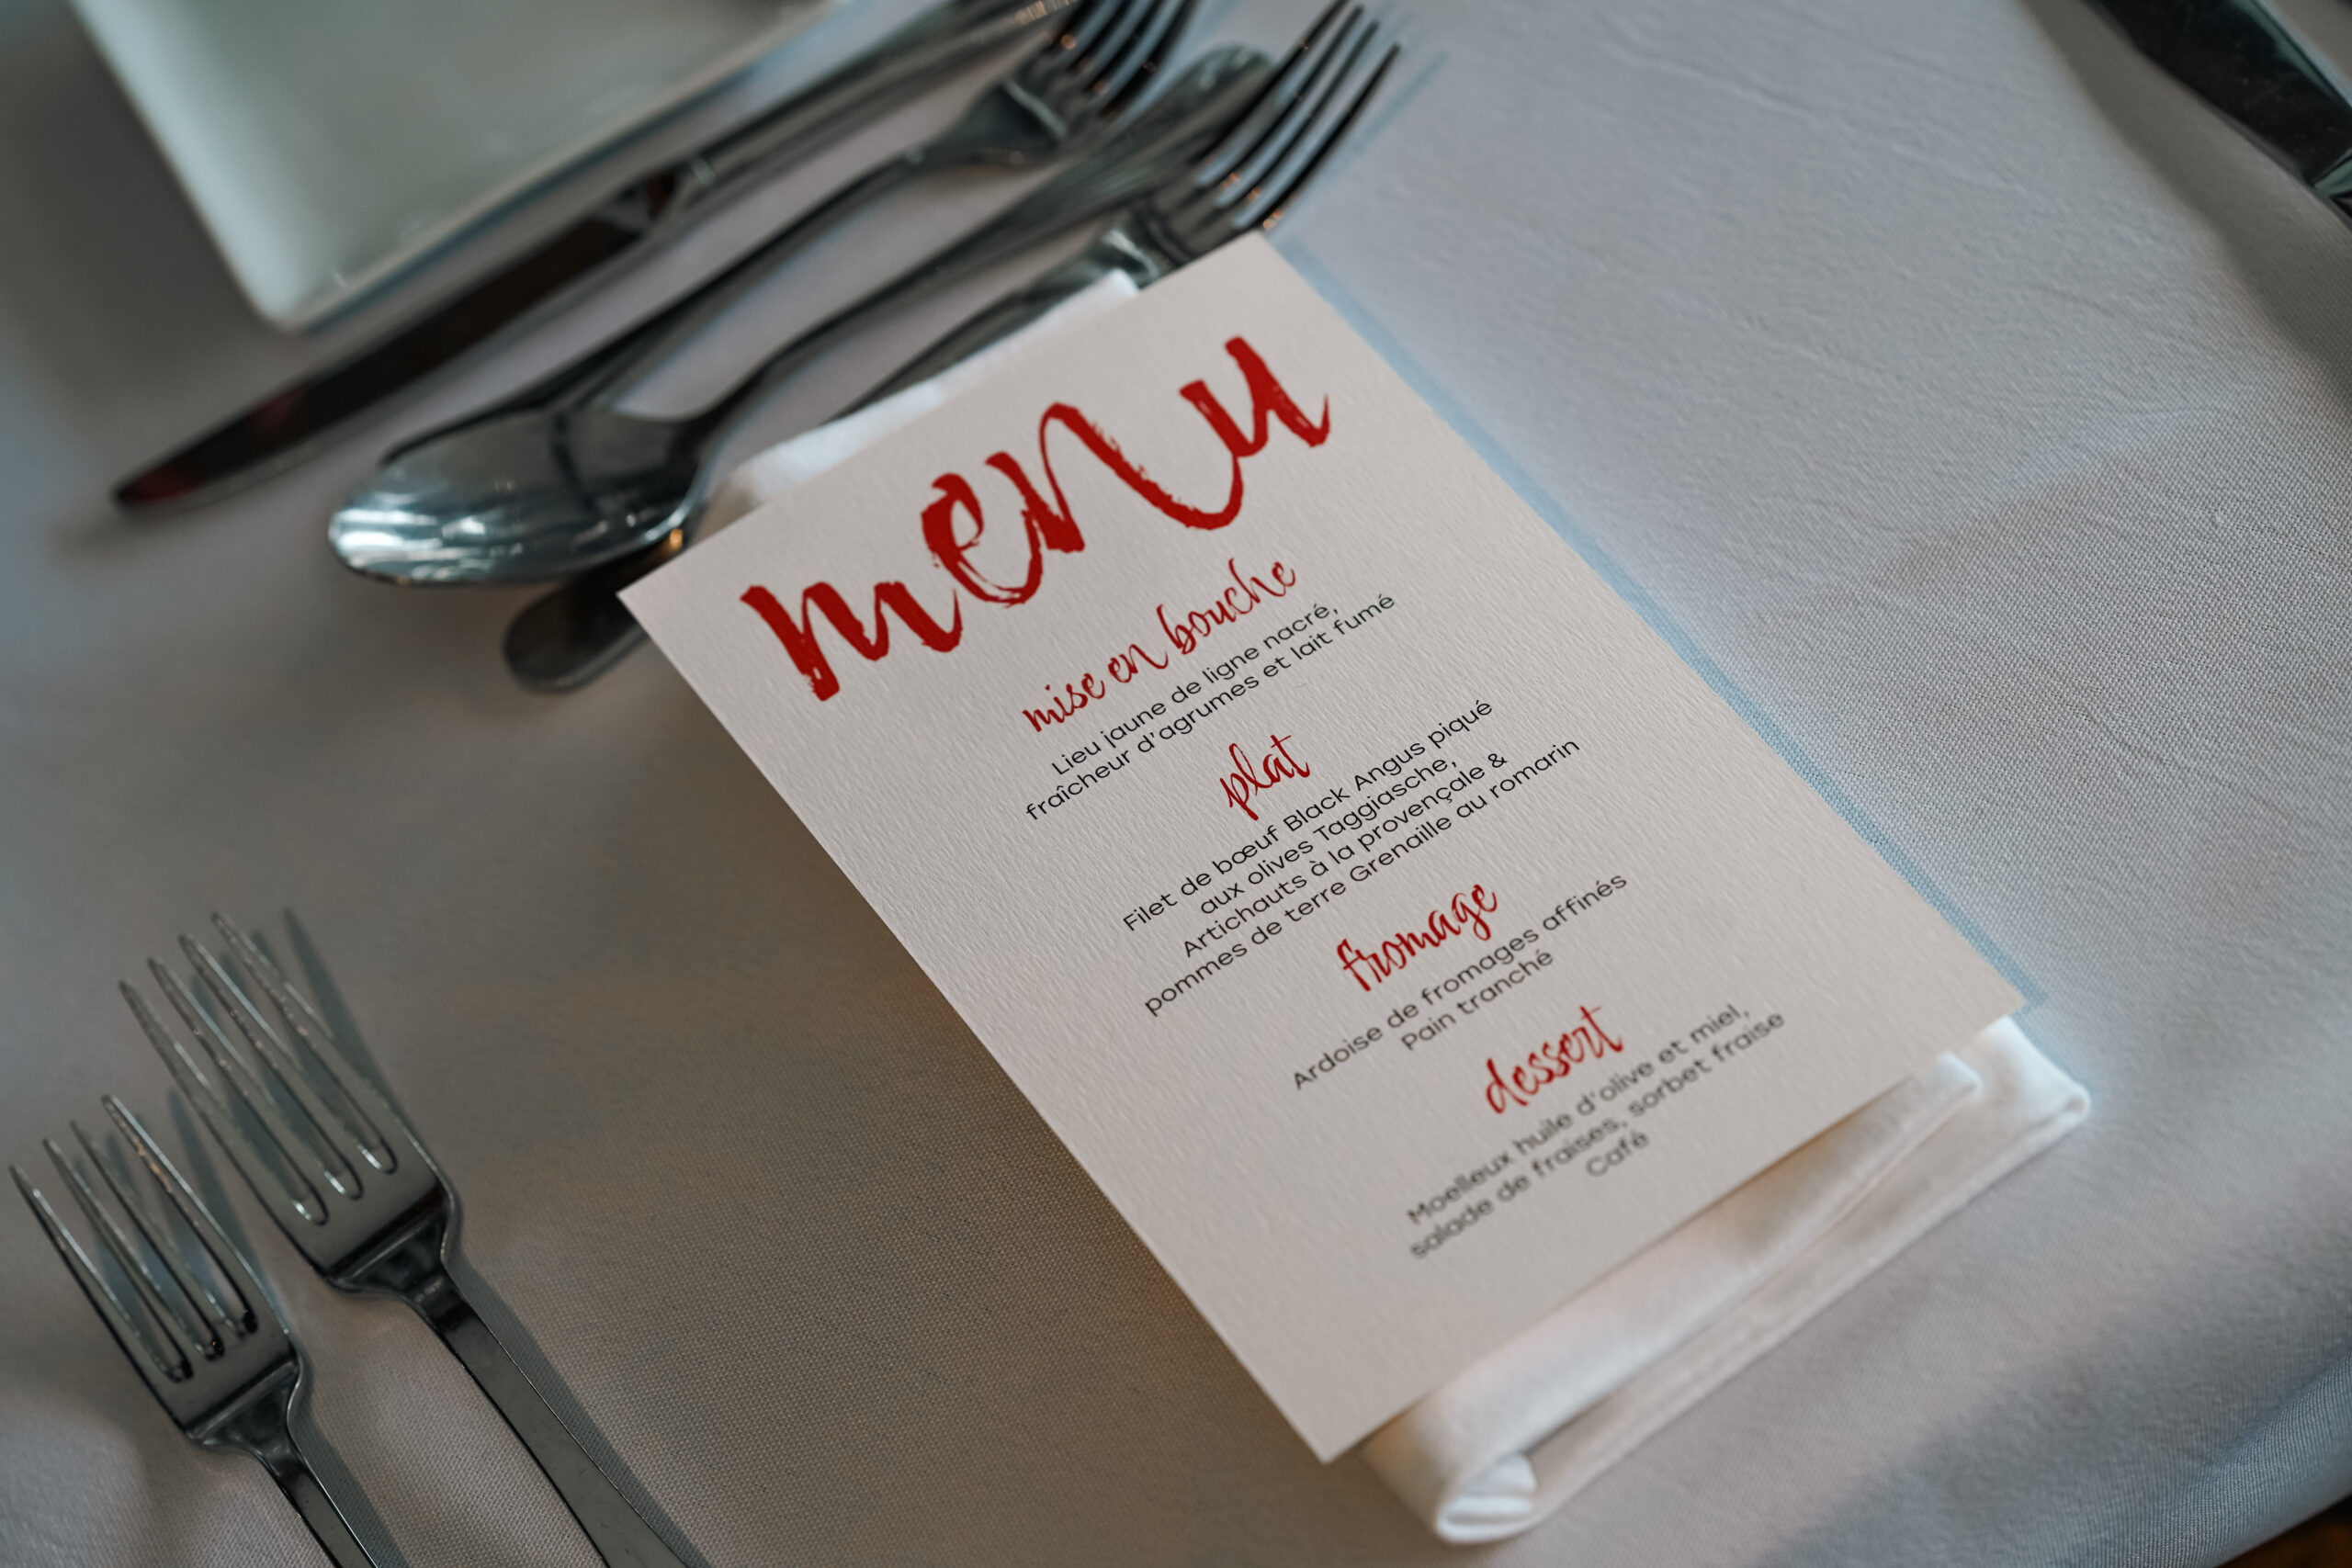 menu
mise en bouche
Lieu jaune de ligne nacré,
fraîcheur d'agrumes et lait fumé
plat
Filet de bœuf Black Angus piqué
aux olives Taggiasche,
Artichauts à la provençale &
pommes de terre Grenaille au romarin
fromage
Ardoise de fromages affinés
Pain tranché
dessert
Moelleux huile d'olive et miel,
salade de fraises, sorbet fraise
Café